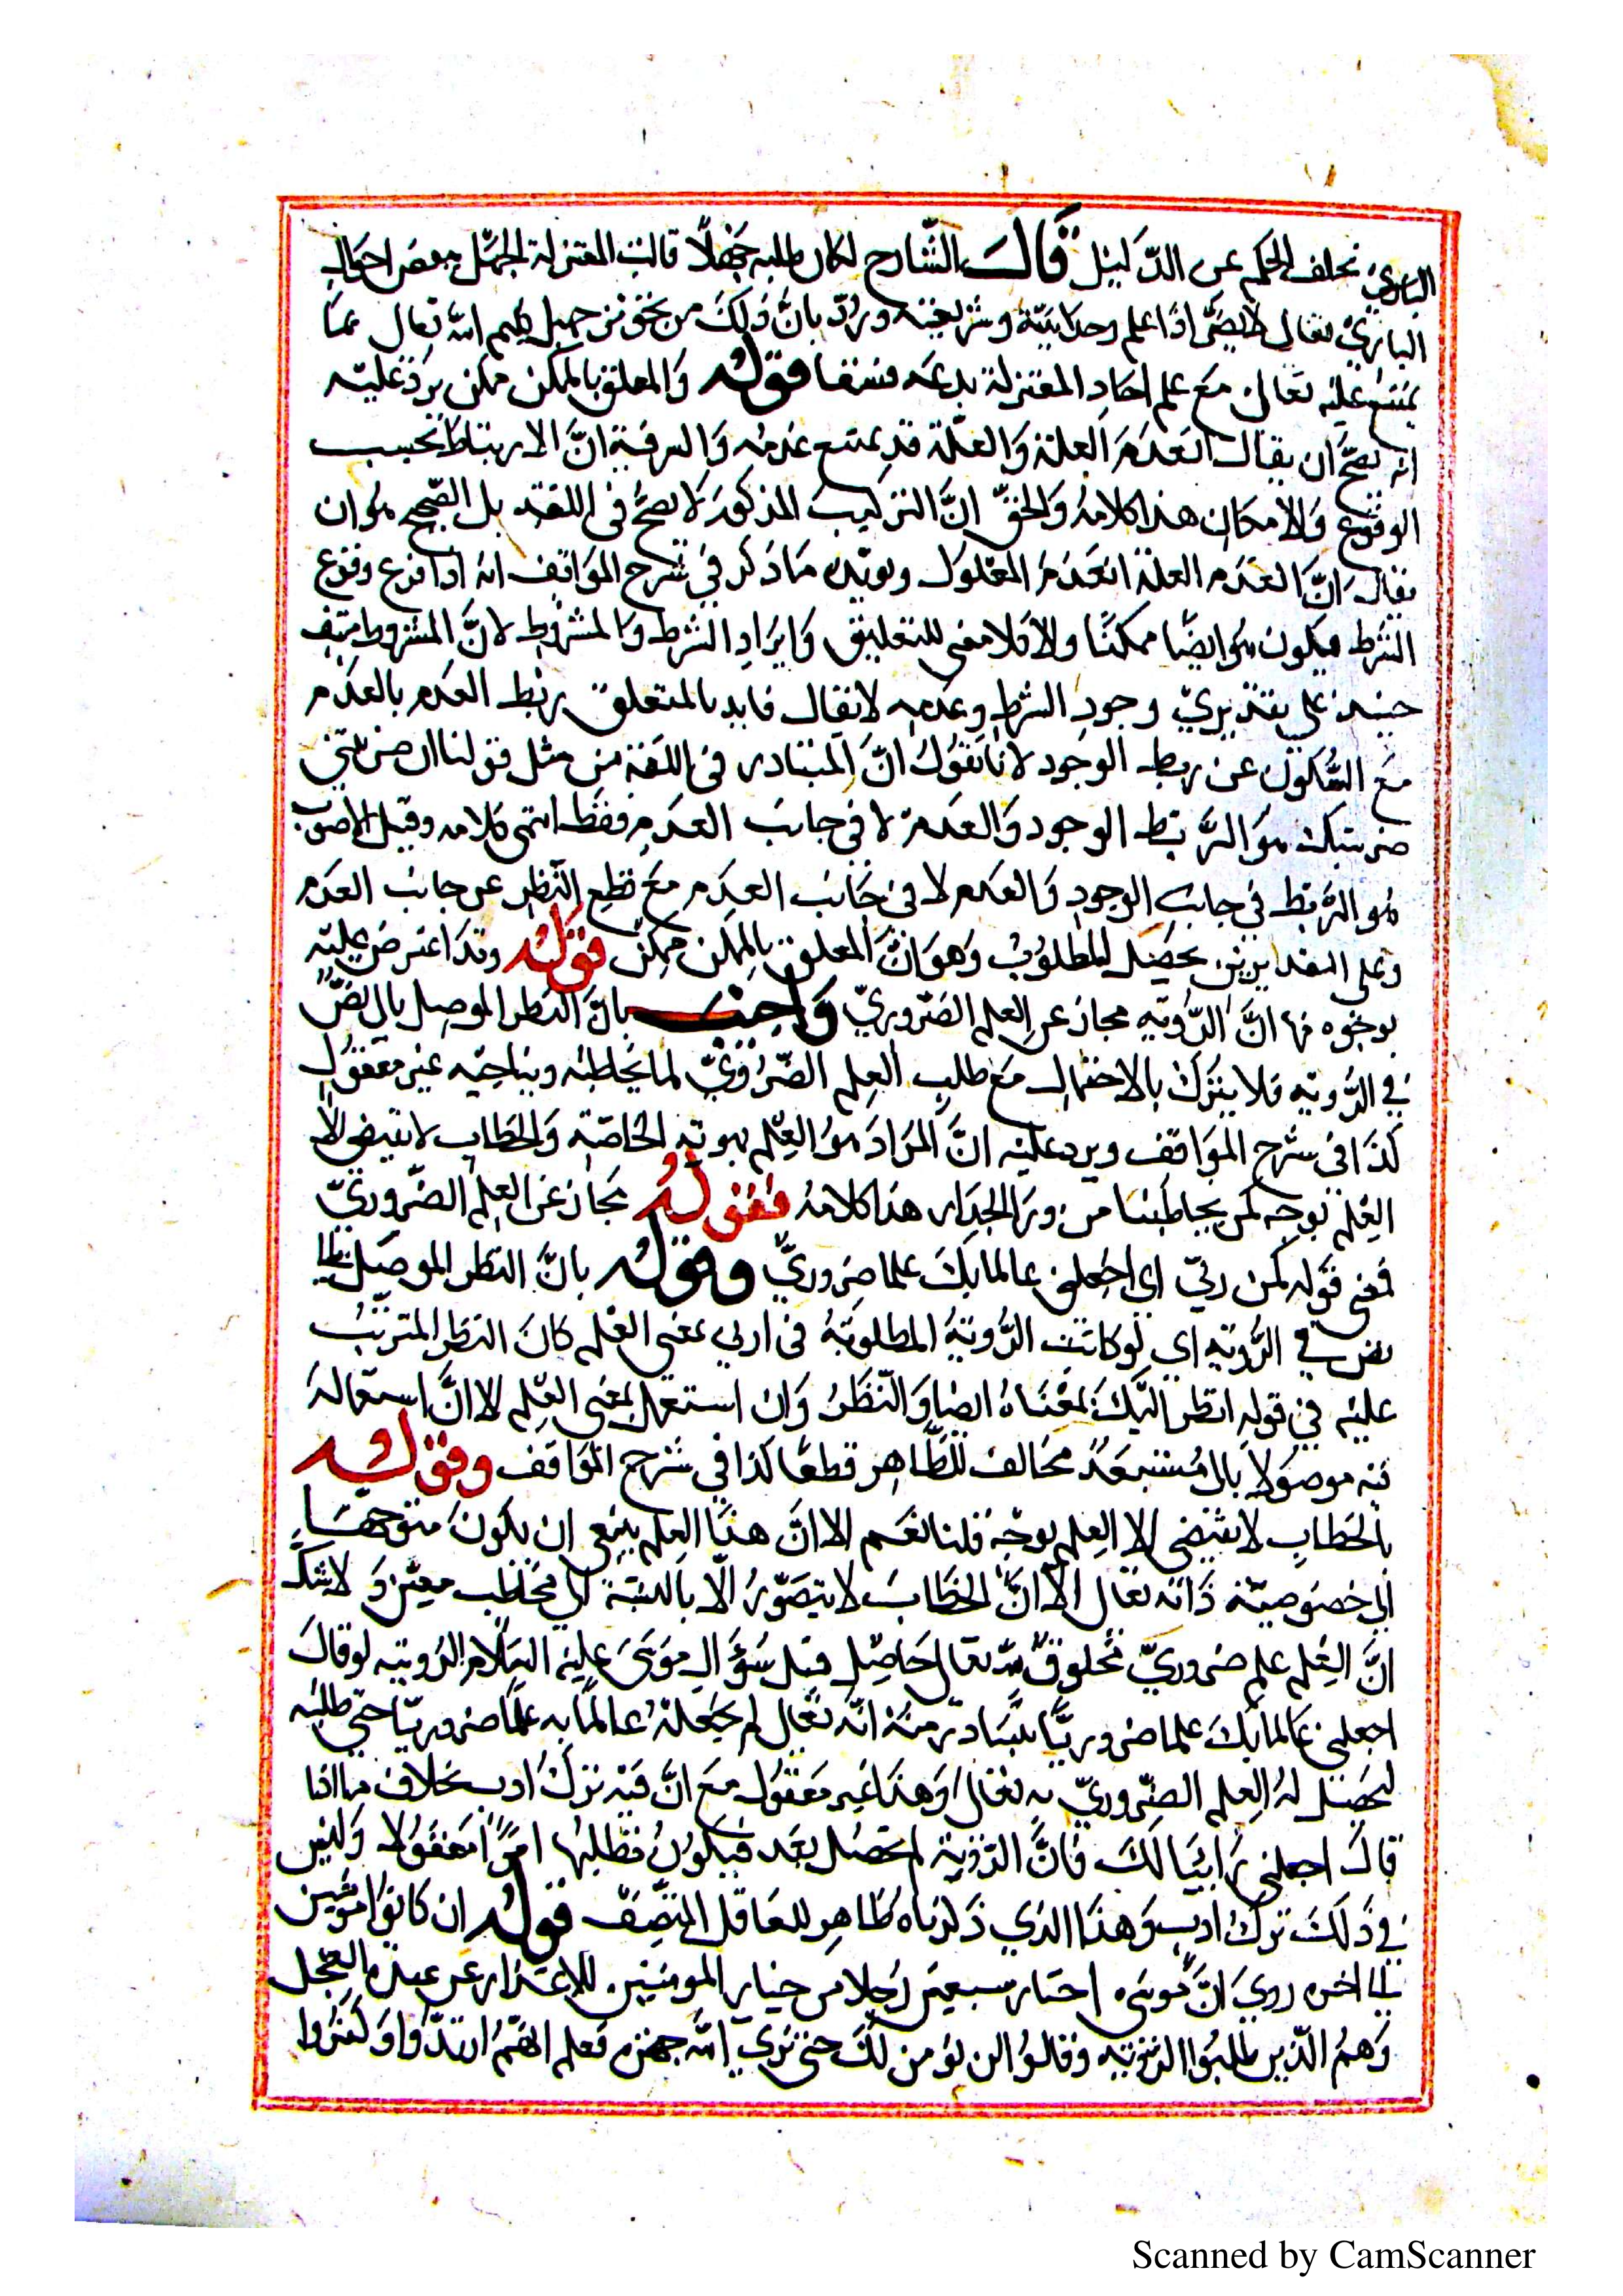 البارى تخلف الحكم عن الدليل قال الشارح لكان طلبه جهلا قالت المعتزلة الجهل ببعض احوال
البارى تعالى لا يضر اذا علم وحدانيته وشريعته ورد بان ذلك من تجويز جهل كليم الله تعالى بما
يمتنع عليه تعالى مع علم احاد المعتزلة بدعة شنعا قوله والمعلق بالممكن ممكن يرد عليه
انه يصح ان يقال انعدم العلة والعلة قد يمتنع عدمه والسر فيه ان الارتباط بحسب
الوقوع والامكان هذا كلامه والحق ان التركيب المذكور لا يصح فى اللغة بل الصحيح هو ان
يقال ان انعدم العلة انعدم المعلول ويؤيده ما ذكر فى شرح المواقف انه اذا فرع وقوع
الشرط فيكون هو ايضا ممكنا والا فلا معنى للتعليق وايراد الشرط والمشروط لان المشروط منتف
حينئذ على تقديرى وجود الشرط وعدمه لا يقال فايدة المتعلق ربط العدم بالعدم
مع السكون عن ربط الوجود لانا نقول ان المتبادر فى اللغة من مثل قولنا ان ضربتنى
ضربتك هو الربط الوجود والعدم لا فى جانب العدم فقط انتهى كلامه وقيل الاصوب
هو الربط فى جانب الوجود والعدم لا فى جانب العدم مع قطع النظر عن جانب العدم
وعلى التقديرين يحصل المطلوب وهو ان المعلق بالممكن ممكن قوله وقد اعترض عليه
بوجوه منها ان الرؤية مجاز عن العلم الضرورى واجيب بان النظر الموصل بالى نص
فى الرؤية فلا يترك بالاحتمال مع طلب العلم الضرورى لما يخاطبه ويناجيه غير معقول
كذا فى شرح المواقف ويرد عليه ان المراد هو العلم بهويته الخاصة والخطاب لا يقتضى الا
العلم بوجه كمن يخاطبنا من ورا الجدار هذا كلامه فقوله مجاز عن العلم الضرورى
فمعنى قوله كمن ربى اى اجعلنى عالما بك علما ضرورى وقوله بان النظر الموصل الى
نص فى الرؤية اى لو كانت الرؤية المطلوبة فى ارنى بمعنى العلم كان النظر المترتب
عليه فى قوله انظر اليك بمعناه ايضا والنظر وان استعمل بمعنى العلم الا ان استعماله
فيه موصولا بالى مستبعد مخالف للظاهر قطعا كذا فى شرح المواقف وقوله
بالخطاب لا يقتضى الا العلم بوجه قلنا نعم الا ان هذا العلم ينبغى ان يكون متوجها
الى خصوصية ذاته تعالى الا ان الخطاب لا يتصور الا بالنسبة الى مخاطب معين ولا شك
ان العلم علم ضرورى مخلوق لله تعالى حاصل قبل سؤال موسى عليه السلام الرؤية لو قال
اجعلنى عالما بك علما ضروريا يتبادر منه انه تعالى لم يجعله عالما به علما ضروريا حتى طلبه
ليحصل له العلم الضرورى به تعالى وهذا غير معقول مع ان فيه ترك ادب بخلاف ما اذا
قال اجعلنى رائيا لك فان الرؤية لم تحصل بعد فيكون طلبها امرا معقولا وليس
فى ذلك ترك ادب وهذا الذى ذكرناه ظاهر للعاقل المنصف قوله ان كانوا مؤمنين
الى اخره روى ان موسى اختار سبعين رجلا من خيار المومنين للاعتذار عن عبدة العجل
وهم الذين طلبوا الرؤية وقالوا لن نؤمن لك حتى نرى الله جهرة فعلم انهم ارتدوا وكفروا
Scanned by CamScanner